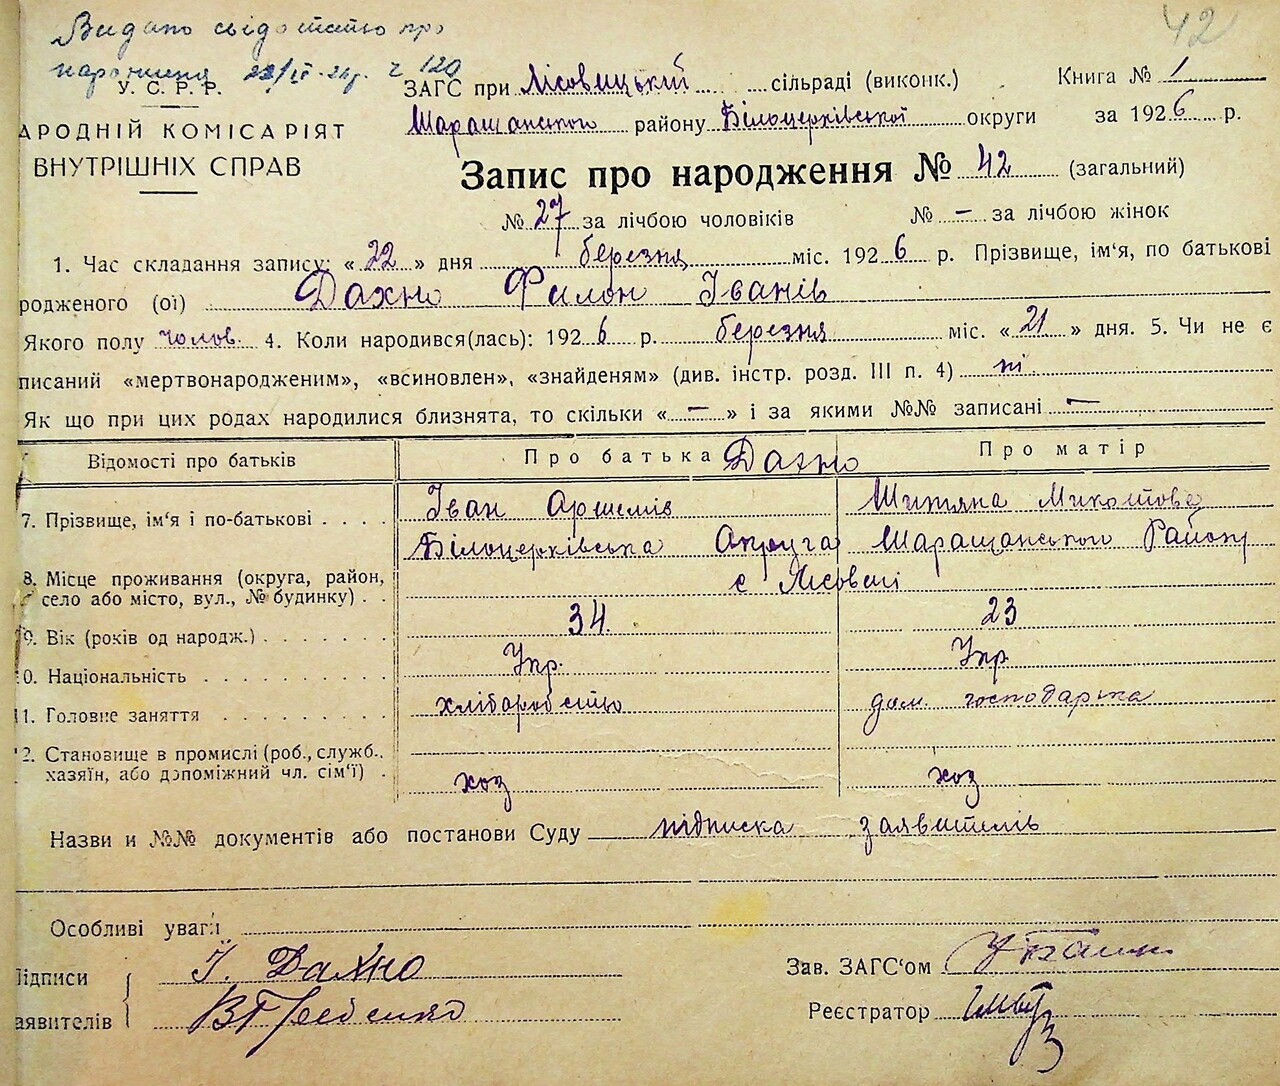 Видано свідотство про
42
народження 22/IV-26р. Ч 120
У. С. Р. Р.
ЗАГС при Лісовицькій сільраді (виконк.)
Книга № 1
АРОДНІЙ КОМІСАРІЯТ
Таращанського району Білоцерківської округи за 1926 р.
ВНУТРІШНІХ СПРАВ
Запис про народження № 42 (загальний)
№ 27 за лічбою чоловіків № — за лічбою жінок
1. Час складання запису: « 22 » дня березня міс. 1926 р. Прізвище, ім'я, по батькові
родженого (ої) Дахно Филон Іванів
Якого полу чолов. 4. Коли народився(лась): 1926 р. березня міс. « 21 » дня. 5. Чи не є
писаний «мертвонародженим», «всиновлен», «знайденям» (див. інстр. розд. III п. 4) ні.
Як що при цих родах народилися близнята, то скільки « — » і за якими №№ записані —
Відомості про батьків
Про батька Дахно Про матір
7. Прізвище, ім'я і по-батькові . . . .
Іван Артемів
Титяна Микитова
8. Місце проживання (округа, район,
село або місто, вул., № будинку) . .
Білоцерківська Округа Таращанського Району
с Лісовичі
9. Вік (років од народж.) . . . . . . .
34.
23
0. Національність . . . . . . . . . .
Укр.
Укр
11. Головне заняття . . . . . . . . .
хліборобство
дом. господарка
2. Становище в промислі (роб., служб.,
хазяїн, або допоміжний чл. сім'ї) .
хоз
хоз
Назви и №№ документів або постанови Суду підписка заявителів
Особливі уваги
Підписи
І. Дахно
Зав. ЗАГС'ом
аявителів
Реєстратор